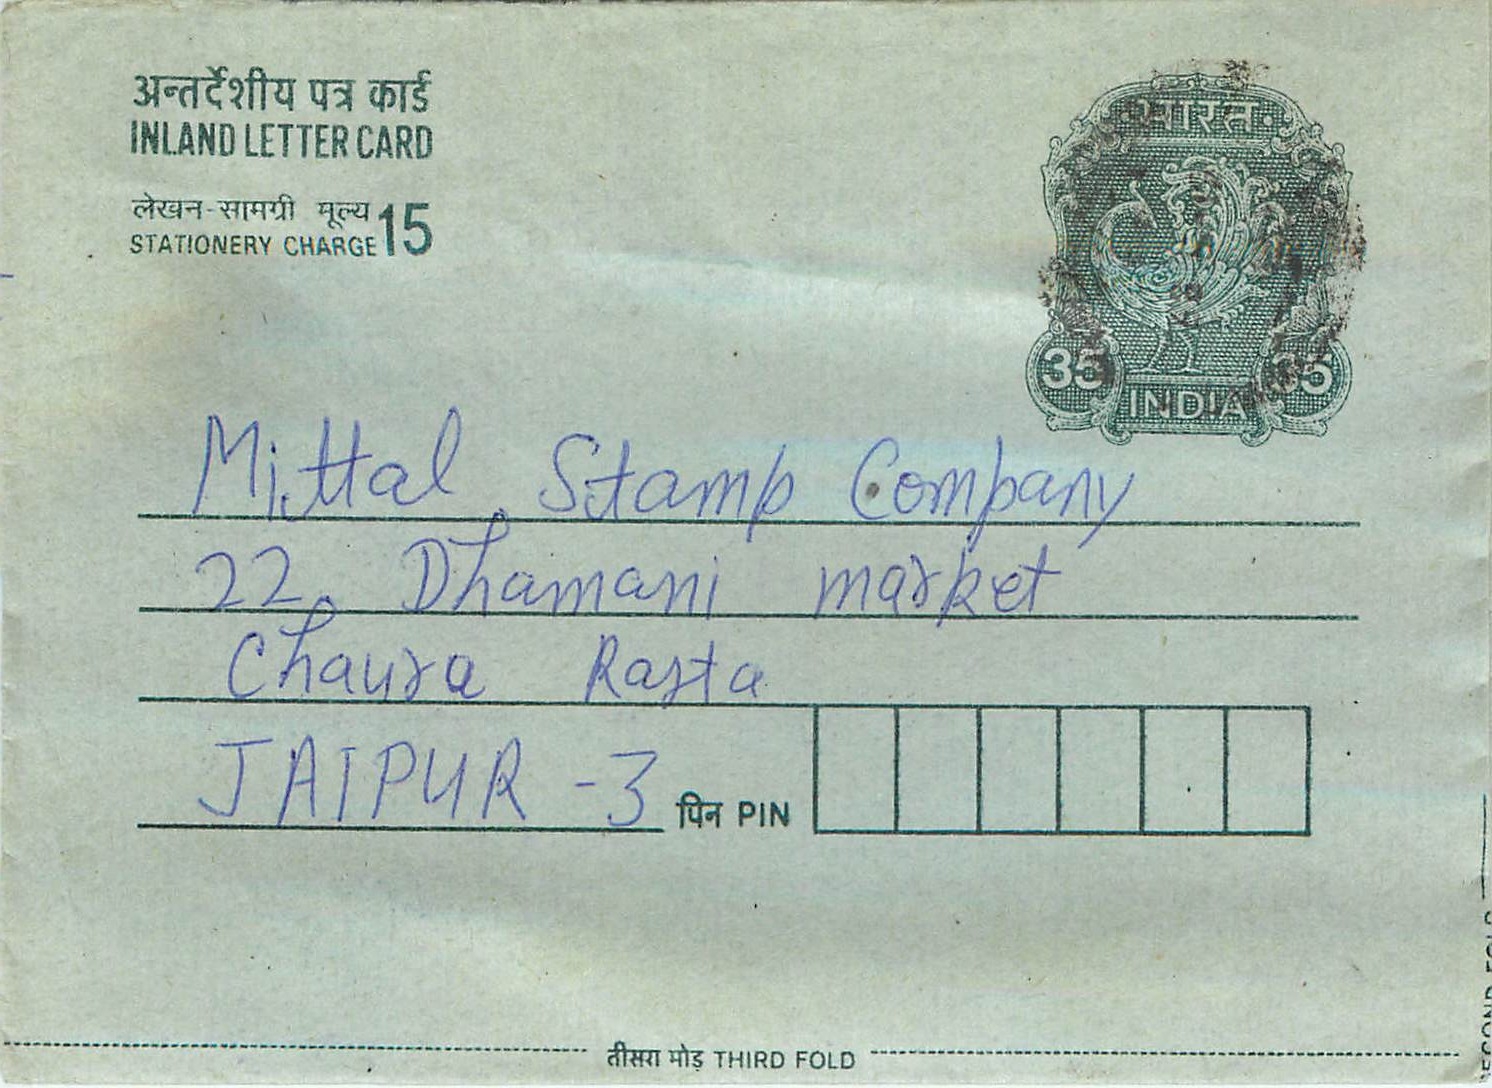 अन्तर्देशीय पत्र कार्ड
INLAND LETTER CARD
लेखन-सामग्री मूल्य
STATIONERY CHARGE 15
भारत
35 35
INDIA
Mittal Stamp Company
22, Dhamani market
Chaura Rasta
JAIPUR -3 पिन PIN
तीसरा मोड़ THIRD FOLD
SECOND FOLD